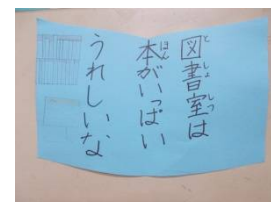 図書室は
本がいっぱい
うれしいな